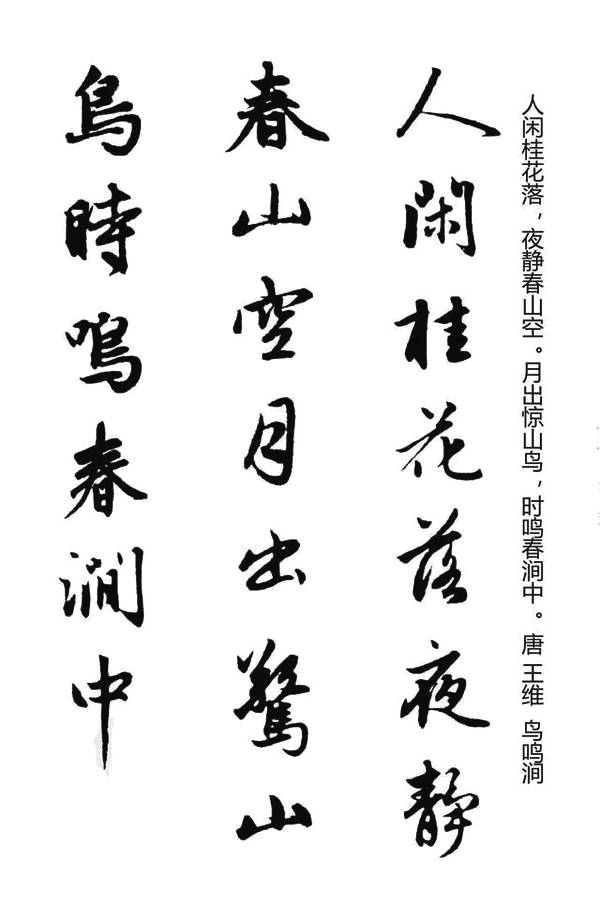 人闲桂花落，夜静春山空。月出惊山鸟，时鸣春涧中。唐 王维 鸟鸣涧
人閑桂花落夜靜
春山空月出驚山
鳥時鳴春澗中